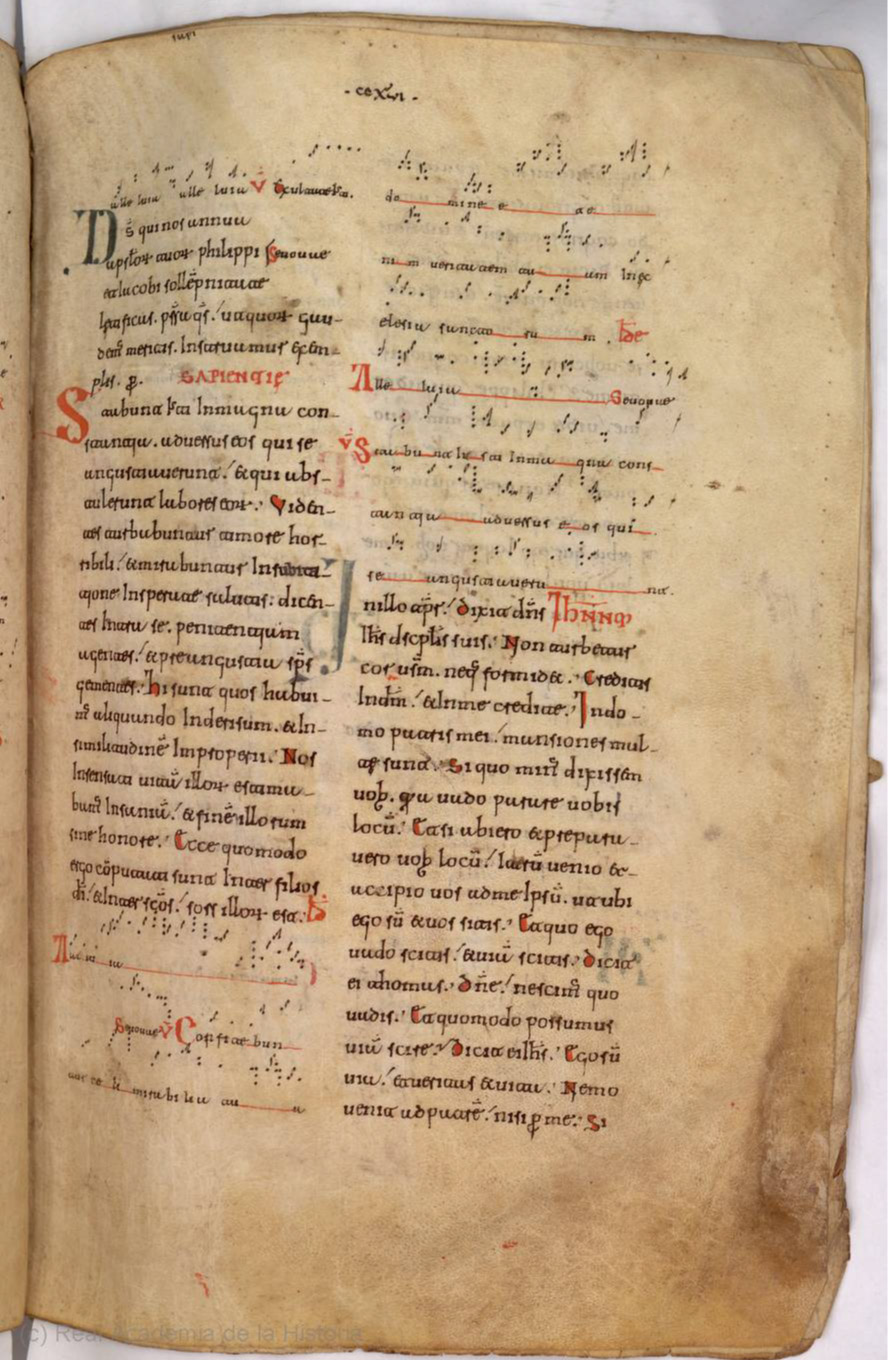 - ccXvi -
alle luia alle luia V Exultate Iusti.
Ds qui nos annua
aplor tuor philippi Seuouae
et iacobi sollēpnitate
letificas. pssta qs. ut quor gau-
dem meritis. Instruamur exem-
plis. p. SAPIENTIE
Stabunt Iusti In magna con-
stantia. aduersus eos qui se
angustiauerunt. & qui abs-
tulerunt labores eor. Viden-
tes turbabuntur timore hor-
ribili. & mirabuntur In subita-
tione Insperate salutis. dicen-
tes Intra se. penitentiam
agentes. & pre angustia sps
gementes. Hi sunt quos habui-
m aliquando In derisum. & In
similitudinē Improperii. Nos
Insensati uitā illor estima-
bam Insaniā. & finē illorum
sine honore. Ecce quomodo
ergo cōputati sunt Inter filios
di. & Inter scos. sors illor est.
A
Seuouae V Confitebun
tur celi mirabilia tu a
do mine e te
nim ueritatem tu am In ec
clesia sancto ru m.
Alle luia Seuouae
V Stabu nt Iu sti In ma gna cons
tantia aduersus e os qui
se angustiauerunt
In illo tpr. Dixit dns IOHNNM
Ihs dscplis suis. Non turbetur
cor usm. neq formid&. Creditis
In dm. & In me credite. In do-
mo patris mei. mansiones mul-
te sunt. Si quo min dixissem
uob. qa uado parare uobis
locū. Et si abiero & prepara-
uero uob locū. Iterū uenio &
accipio uos ad me Ipsū. ut ubi
ego sū & uos sitis. Et quo ego
uado scitis. & uiā scitis. Dicit
ei thomas. Dne. nescim quo
uadis. Et quomodo possumus
uiā scire. Dicit ei ihs. Ego sū
uia. & ueritas & uita. Nemo
uenit ad patrē. nisi p me. Si